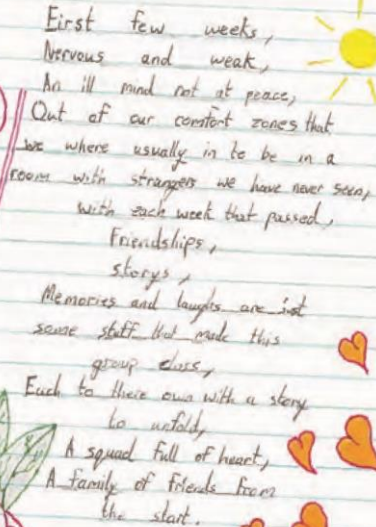 First few weeks,
Nervous and weak,
An ill mind not at peace,
Out of our comfort zones that
we where usually in to be in a
room with strangers we have never seen,
with each week that passed,
Friendships,
storys,
Memories and laughs are just
some stuff that made this
group class,
Each to there own with a story
to unfold,
A squad full of heart,
A family of friends from
the start.